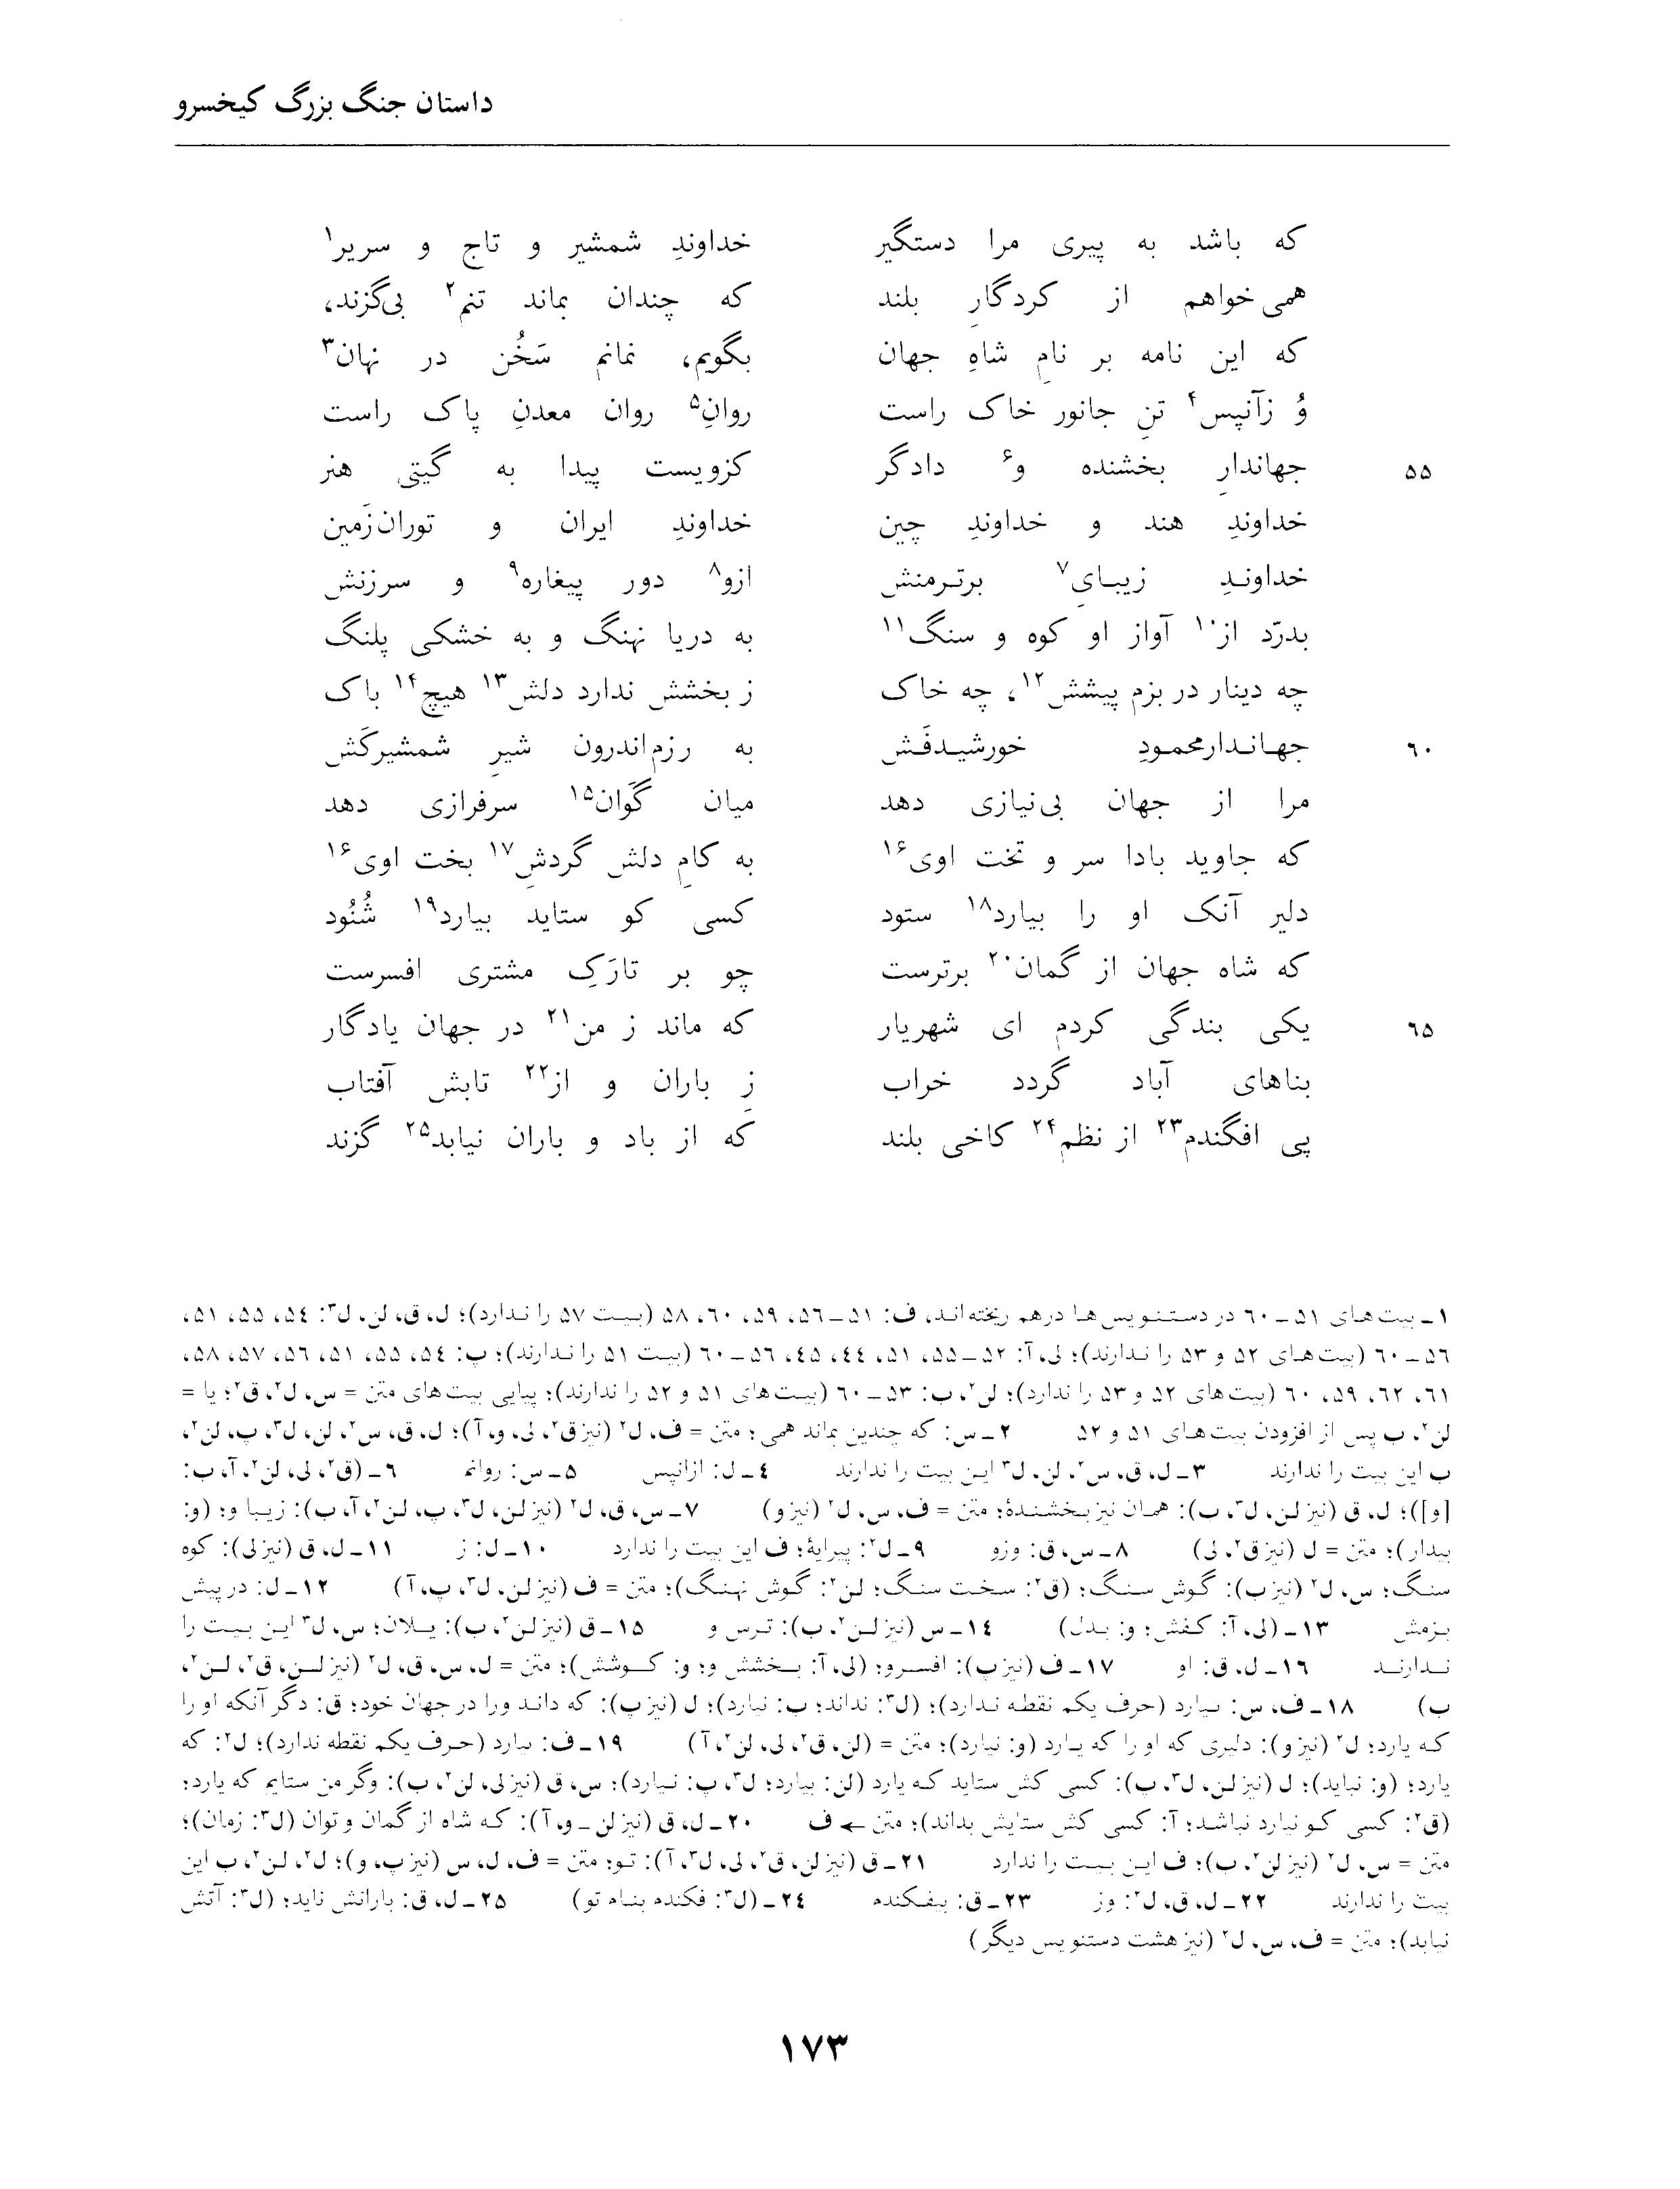 داستان جنگ بزرگ کیخسرو
که باشد به پیری مرا دستگیر خداوندِ شمشیر و تاج و سریر۱
همی خواهم از کردگارِ بلند که چندان بماند تنم۲ بی‌گزند،
که این نامه بر نامِ شاهِ جهان بگویم، نمانم سَخُن در نهان۳
وُ زآنپس۴ تنِ جانور خاک راست روانِ۵ روان معدنِ پاک راست
۵۵ جهاندارِ بخشنده و۶ دادگر کزویست پیدا به گیتی هنر
خداوندِ هند و خداوندِ چین خداوندِ ایران و توران‌زَمین
خداوندِ زیبایِ۷ برترمنش ازو۸ دور پیغاره۹ و سرزنش
بدرّد از۱۰ آواز او کوه و سنگ۱۱ به دریا نهنگ و به خشکی پلنگ
چه دینار در بزم پیشش۱۲، چه خاک ز بخشش ندارد دلش۱۳ هیچ۱۴ باک
۶۰ جهاندارمحمودِ خورشیدفَش به رزم‌اندرون شیرِ شمشیرکَش
مرا از جهان بی‌نیازی دهد میان گَوان۱۵ سرفرازی دهد
که جاوید بادا سر و تخت اوی۱۶ به کامِ دلش گردشِ۱۷ بخت اوی۱۶
دلیر آنک او را بیارد۱۸ ستود کسی کو ستاید بیارد۱۹ شُنُود
که شاه جهان از گمان۲۰ برترست چو بر تارَکِ مشتری افسرست
۶۵ یکی بندگی کردم ای شهریار که ماند ز من۲۱ در جهان یادگار
بناهای آباد گردد خراب زِ باران و از۲۲ تابش آفتاب
پی افگندم۲۳ از نظم۲۴ کاخی بلند که از باد و باران نیابد۲۵ گزند
۱ـ بیت‌های ۵۱ـ۶۰ در دستنویس‌ها درهم ریخته‌اند، ف: ۵۱ـ۵۶، ۵۹، ۶۰، ۵۸ (بیت ۵۷ را ندارد)؛ ل، ق، لن، ل۳: ۵۴، ۵۵، ۵۱،
۵۶ـ۶۰ (بیت‌های ۵۲ و ۵۳ را ندارند)؛ لی، آ: ۵۲ـ۵۵، ۵۱، ۴۴، ۴۵، ۵۶ـ۶۰ (بیت ۵۱ را ندارند)؛ پ: ۵۴، ۵۵، ۵۱، ۵۶، ۵۷، ۵۸،
۶۱، ۶۲، ۵۹، ۶۰ (بیت‌های ۵۲ و ۵۳ را ندارد)؛ لن۲، ب: ۵۳ـ۶۰ (بیت‌های ۵۱ و ۵۲ را ندارند)؛ پیاپی بیت‌های متن = س، ل۲، ق۲؛ یا =
لن۲، ب پس از افزودن بیت‌های ۵۱ و ۵۲ ۲ـ س: که چندین بماند همی؛ متن = ف، ل۲ (نیز ق۲، لی، و، آ)؛ ل، ق، س۲، لن، ل۳، پ، لن۲،
ب این بیت را ندارند ۳ـ ل، ق، س۲، لن، ل۳ این بیت را ندارند ۴ـ ل: ازانپس ۵ـ س: روانم ۶ـ (ق۲، لی، لن۲، آ، ب:
[و])؛ ل، ق (نیز لن، ل۳، ب): همان نیز بخشندهٔ؛ متن = ف، س، ل۲ (نیز و) ۷ـ س، ق، ل۲ (نیز لن، ل۳، پ، لن۲، آ، ب): زیبا و؛ (و:
بیدار)؛ متن = ل (نیز ق۲، لی) ۸ـ س، ق: وزو ۹ـ ل۲: پیرایهٔ؛ ف این بیت را ندارد ۱۰ـ ل: ز ۱۱ـ ل، ق (نیز لی): کوه
سنگ؛ س، ل۲ (نیز ب): گوش سنگ؛ (ق۲: سخت سنگ؛ لن۲: گوش نهنگ)؛ متن = ف (نیز لن، ل۳، پ، آ) ۱۲ـ ل: در پیش
بزمش ۱۳ـ (لی، آ: کفش؛ و: بدل) ۱۴ـ س (نیز لن۲، ب): ترس و ۱۵ـ ق (نیز لن۲، ب): یلان؛ س، ل۳ این بیت را
ندارند ۱۶ـ ل، ق: او ۱۷ـ ف (نیز پ): افسرو؛ (لی، آ: بخشش و؛ و: کوشش)؛ متن = ل، س، ق، ل۲ (نیز لن، ق۲، لن۲،
ب) ۱۸ـ ف، س: ٮیارد (حرف یکم نقطه ندارد)؛ (ل۳: نداند؛ ب: نیارد)؛ ل (نیز پ): که داند ورا در جهان خود؛ ق: دگر آنکه او را
که یارد؛ ل۲ (نیز و): دلیری که او را که یارد (و: نیارد)؛ متن = (لن، ق۲، لی، لن۲، آ) ۱۹ـ ف: ٮیارد (حرف یکم نقطه ندارد)؛ ل۲: که
یارد؛ (و: نیاید)؛ ل (نیز لن، ل۳، پ): کسی کش ستاید که یارد (لن: بیارد؛ ل۳، پ: نیارد)؛ س، ق (نیز لی، لن۲، ب): وگر من ستایم که یارد؛
(ق۲: کسی کو نیارد نباشد؛ آ: کسی کش ستایش بداند)؛ متن ← ف ۲۰ـ ل، ق (نیز لن ـ و، آ): که شاه از گمان و توان (ل۳: زمان)؛
متن = س، ل۲ (نیز لن۲، ب)؛ ف این بیت را ندارد ۲۱ـ ق (نیز لن، ق۲، لی، ل۳، آ): تو؛ متن = ف، ل، س (نیز پ، و)؛ ل۲، لن۲، ب این
بیت را ندارند ۲۲ـ ل، ق، ل۲: وز ۲۳ـ ق: بیفکندم ۲۴ـ (ل۳: فکنده بنام تو) ۲۵ـ ل، ق: بارانش ناید؛ (ل۳: آتش
نیابد)؛ متن = ف، س، ل۲ (نیز هشت دستنویس دیگر)
۱۷۳